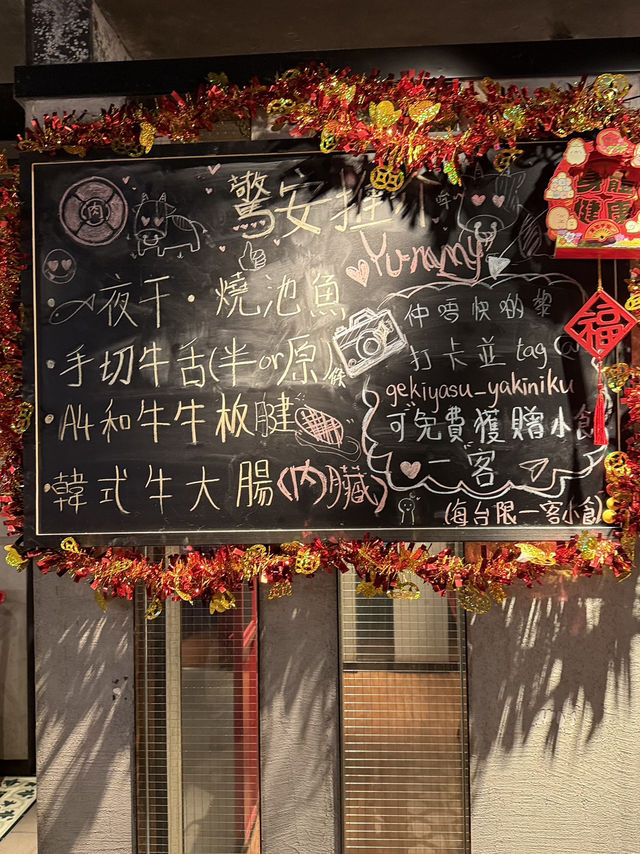 肉
驚安推介
Yummy
一夜干・燒池魚
手切牛舌(半or原條)
A4和牛牛板腱
韓式牛大腸(內臟)
仲唔快啲黎
打卡並tag@
gekiyasu_yakiniku
可免費獲贈小食
一客
(每台限一客小食)
身體
健康
福